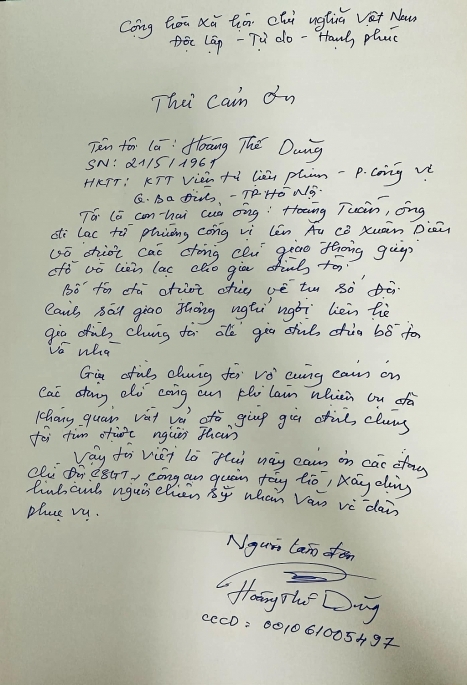 Cộng hòa xã hội chủ nghĩa Việt Nam
Độc lập - Tự do - Hạnh phúc
Thư cảm ơn
Tên tôi là: Hoàng Thế Dũng
SN: 21/5/1961
HKTT: KTT Viện tư liệu phim - P. Cống vị
Q. Ba Đình - TP Hà Nội.
Tôi là con trai của ông: Hoàng Tuấn, ông
đi lạc từ phường cống vị lên Âu cơ Xuân Diệu
và được các đồng chí giao thông giúp
đỡ và liên lạc cho gia đình tôi.
Bố tôi đã được đưa về trụ sở Đội
cảnh sát giao thông nghỉ ngơi liên hệ
gia đình chúng tôi để gia đình đưa bố tôi
về nhà
Gia đình chúng tôi vô cùng cảm ơn
các đồng chí công an khi làm nhiệm vụ đã
không quản vất vả đã giúp gia đình chúng
tôi tìm được người thân
Vậy tôi viết lá thư này cảm ơn các đồng
chí Đội CSGT, công an quận tây hồ, xây dựng
hình ảnh người chiến sỹ nhân văn vì dân
phục vụ.
Người làm đơn
Hoàng Thế Dũng
CCCD: 001061005497